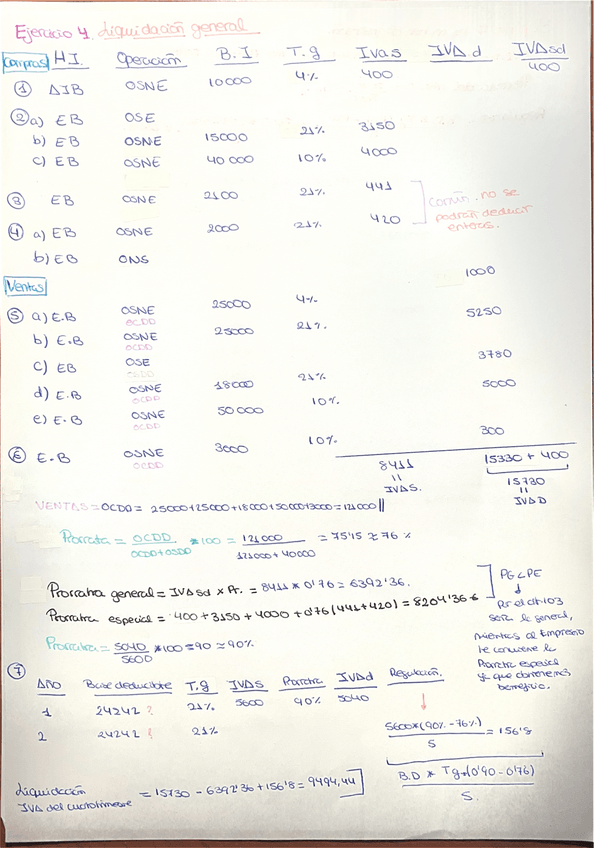 Ejercicio 4. Liquidación general
Compras H.I. Operación B.I T.g IVAs IVA d IVAsd
① AIB OSNE 10000 4% 400 400
② a) EB OSE
b) EB OSNE 15000 21% 3150
c) EB OSNE 40 000 10% 4000
③ EB OSNE 2100 21% 441
común. no se podrán deducir enteras.
④ a) EB OSNE 2000 21% 420
b) EB ONS
Ventas
⑤ a) E.B OSNE 25000 4% 1000
OCDD
b) E.B OSNE 25000 21% 5250
OCDD
c) EB OSE
OCDD
d) E.B OSNE 18000 21% 3780
OCDD
e) E.B OSNE 50 000 10% 5000
OCDD
⑥ E.B OSNE 3000 10% 300
OCDD
8411 15330 + 400
= =
IVAS. 15730
=
IVAD
VENTAS = OCDD = 25000+25000+18000+50000+3000 = 121000 ||
Prorrata = OCDD / OCDD+OSDD * 100 = 121000 / 121000 + 40000 = 75'15 ≈ 76 %
Prorrata general = IVAsd x Pr. = 8411 * 0'76 = 6392'36.
Prorrata especial = 400 + 3150 + 4000 + 0'76 (441+420) = 8204'36 €
PG < PE
↓
Por el art-103
será la general,
mientras al Empresario
le conviene la
Prorrata especial
ya que obtenemos
beneficio.
Prorrata = 5040 / 5600 * 100 = 90 ≈ 90%
⑦
AÑO Base deducible T.g IVAS Prorrata IVAd Regulación.
1 24242 ? 21% 5600 90% 5040 ↓
2 24242 ? 21% 5600*(90% - 76%) / 5 = 156'8
B.D * Tg * (0'90 - 0'76) / 5.
Liquidación
IVA del cuatrimestre = 15730 - 6392'36 + 156'8 = 9494,44